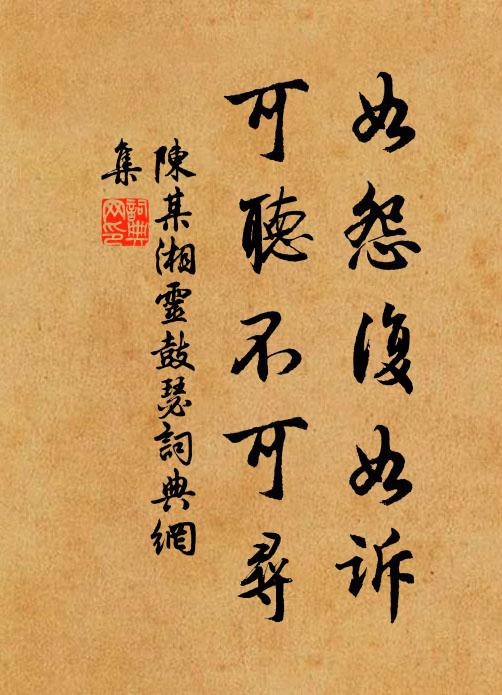 如怨復如訴
可聽不可尋
陳某湘靈鼓瑟詞典網
集
詞典
网印